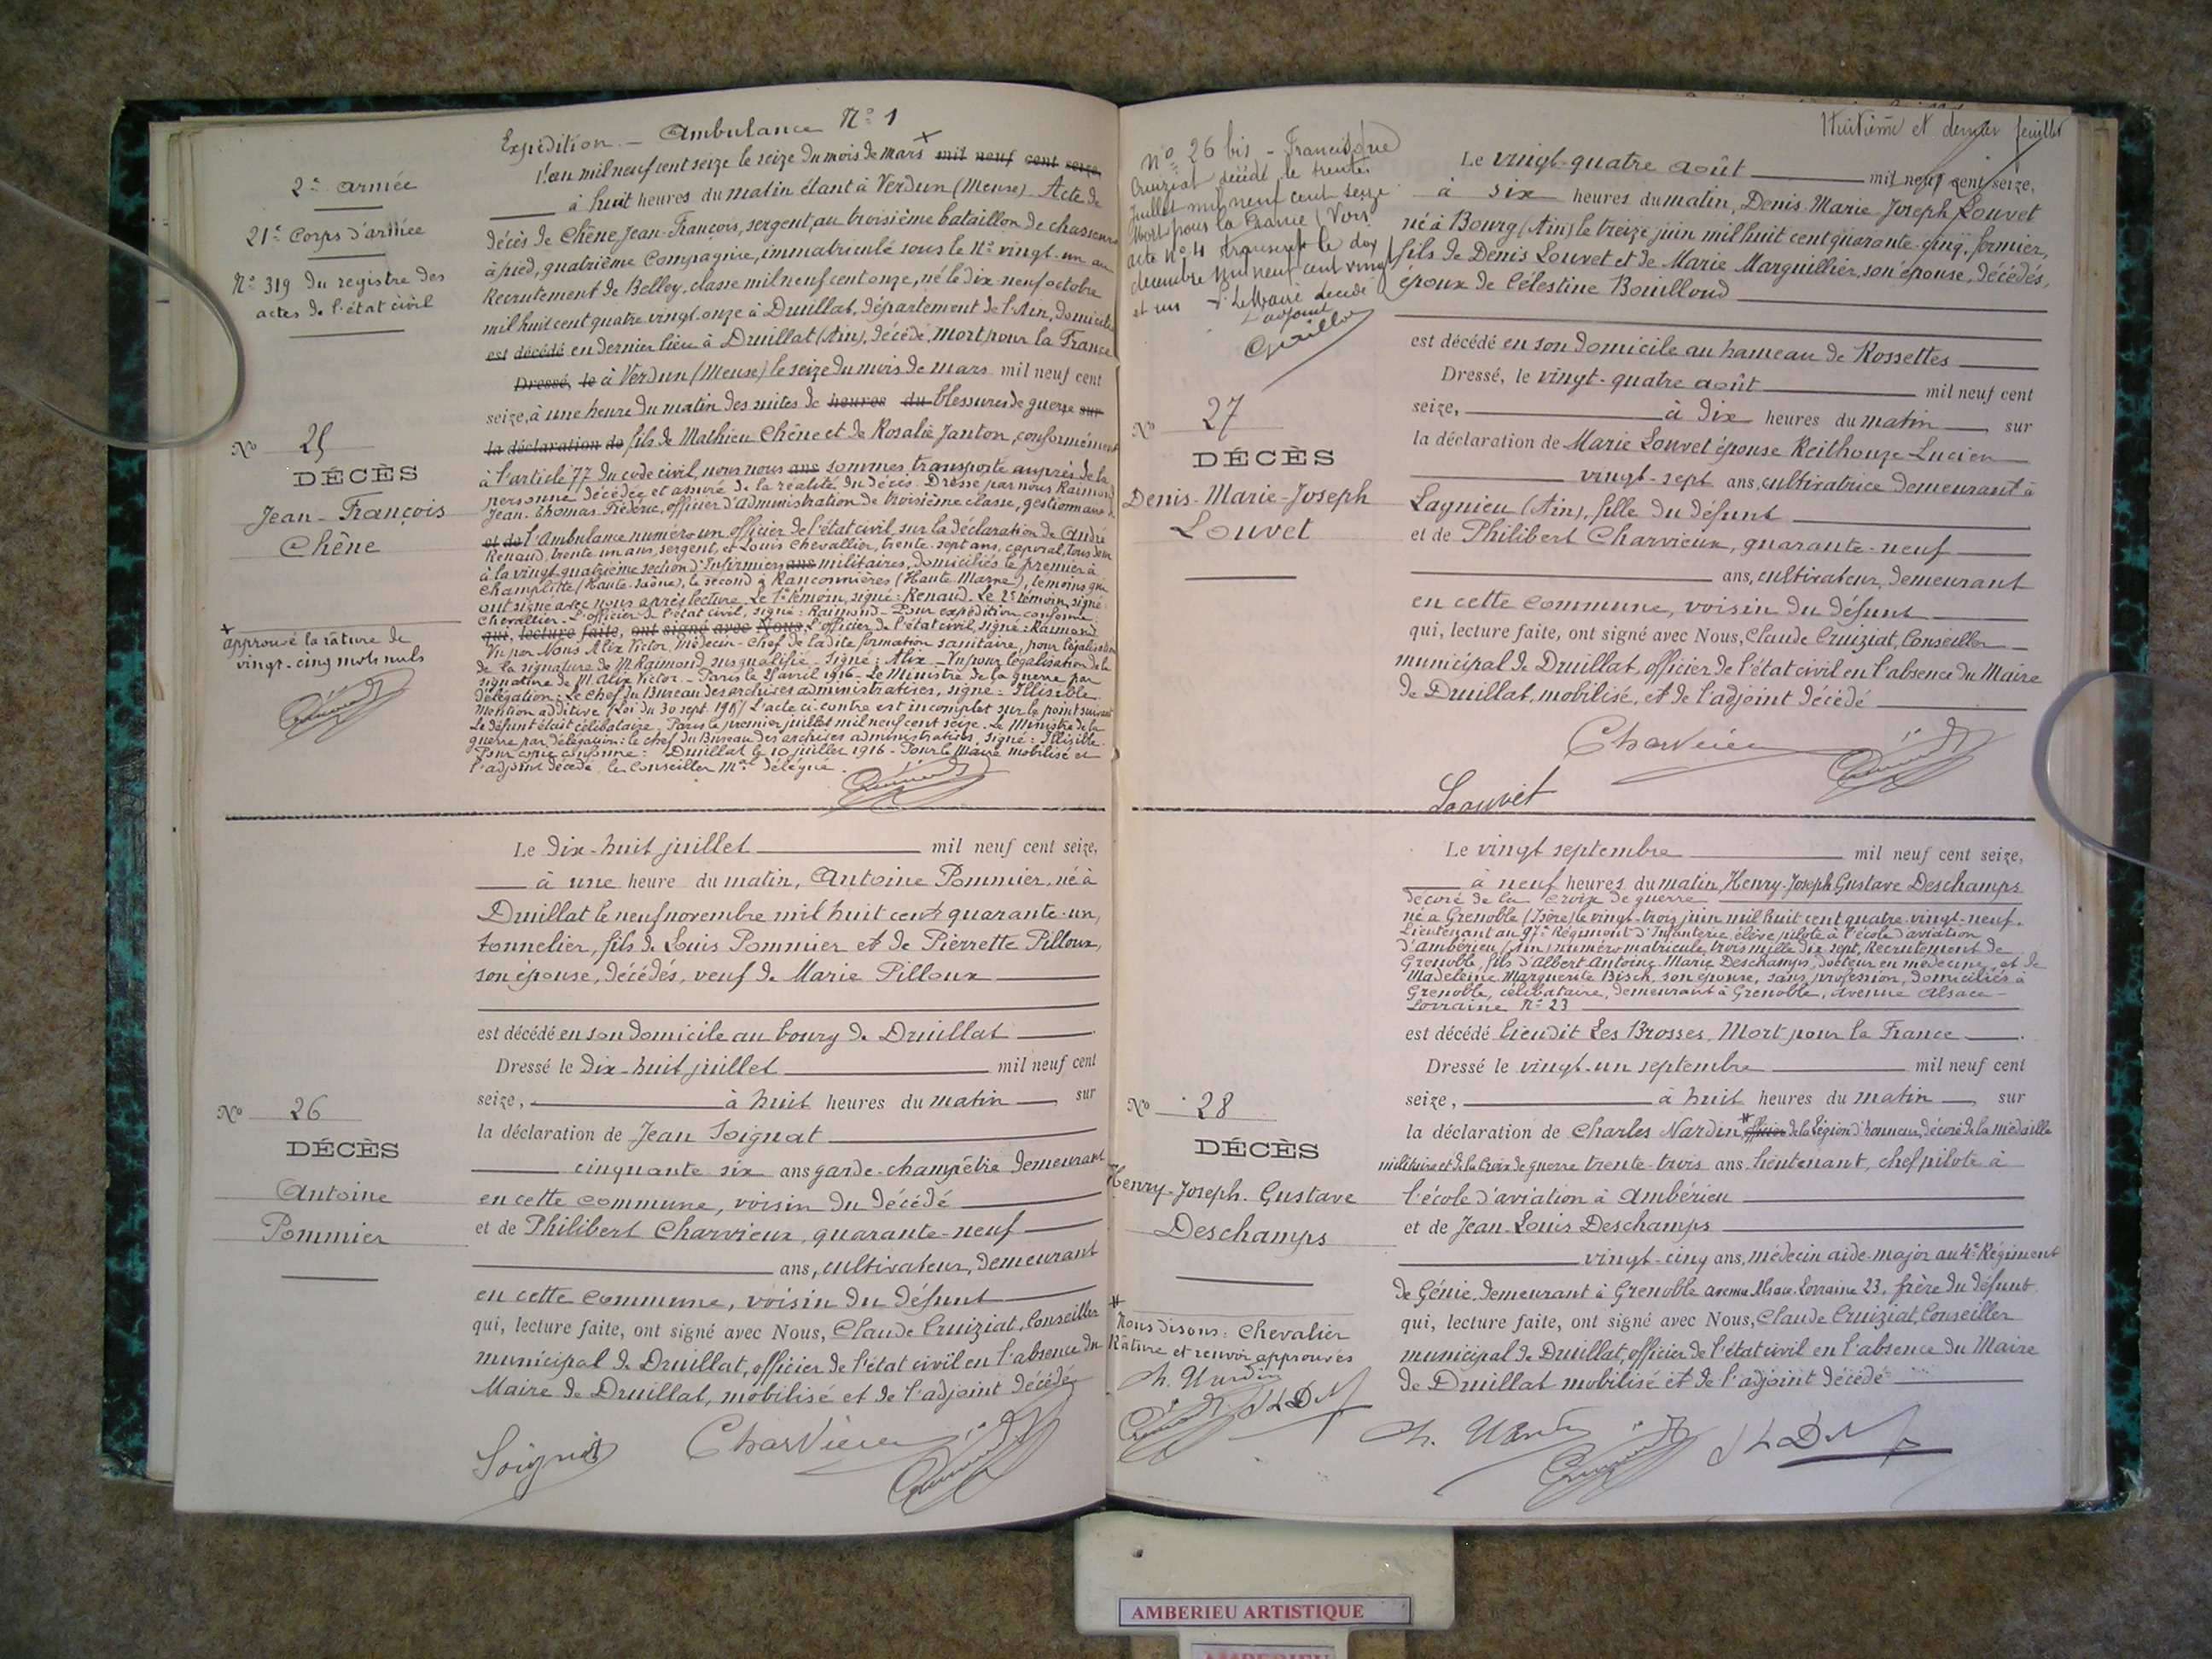 Expédition. — Ambulance N° 1
2e armée
21e Corps d'armée
N° 319 du registre des
actes de l'état civil
L'an mil neuf cent seize le seize du mois de mars mil neuf cent seize
à huit heures du matin étant à Verdun (Meuse) _ Acte de
décès de Chêne Jean-François, sergent, au troisième bataillon de chasseurs
à pied, quatrième Compagnie, immatriculé sous le N° vingt-un au
Recrutement de Belley, classe mil neuf cent onze, né le dix neuf octobre
mil huit cent quatre vingt-onze à Druillat, département de l'Ain, domicilié
est décédé en dernier lieu à Druillat (Ain), décédé, mort pour la France
Dressé, le à Verdun (Meuse) le seize du mois de mars mil neuf cent
seize, à une heure du matin des suites de heures du blessures de guerre sur
la déclaration de fils de Mathieu Chêne et de Rosalie Janton, conformément
à l'article 77 du code civil, nous nous ans sommes transporté auprès de la
personne décédée et assuré de la réalité du décès. Dressé par nous Raimond
Jean-Thomas-Frédéric, officier d'administration de troisième classe, gestionnaire
et de l'Ambulance numéro un officier de l'état civil, sur la déclaration de André
Renaud, trente un ans, sergent, et Louis Chevallier, trente-sept ans, caporal, tous deux
à la vingt-quatrième section d'Infirmiers ans militaires, domiciliés le premier à
Champlitte (Haute-Saône), le second à Rançonnières (Haute Marne), témoins qui
ont signé avec nous après lecture. Le 1er témoin, signé : Renaud. Le 2e témoin, signé :
Chevallier. L'officier de l'état civil, signé : Raimond _ Pour expédition conforme
qui, lecture faite, ont signé avec Nous, L'officier de l'état civil, signé : Raimond
Vu par Nous Alix Victor, Médecin-Chef de la dite formation sanitaire, pour légalisation
de la signature de M. Raimond susqualifié. Signé : Alix. _ Vu pour légalisation de la
signature de M. Alix Victor. _ Paris le avril 1916 _ Le Ministre de la guerre par
délégation : Le Chef du Bureau des archives administratives, signé : Illisible.
Mention additive (Loi du 30 sept. L'acte ci-contre est incomplet sur le point suivant
Le défunt était célibataire, Paris le premier juillet mil neuf cent seize. Le Ministre de la
guerre par délégation : le chef du Bureau des archives administratives, signé : Illisible.
Pour copie conforme : Druillat le 10 juillet 1916 _ Pour le Maire mobilisé et
l'adjoint décédé, le Conseiller Mal délégué
N° 25
DÉCÈS
Jean-François
Chêne
approuvé la râture de
vingt-cinq mots nuls
Le dix-huit juillet mil neuf cent seize,
à une heure du matin, Antoine Pommier, né à
Druillat le neuf novembre mil huit cent quarante-un,
tonnelier, fils de Louis Pommier et de Pierrette Pilloux,
son épouse, décédés, veuf de Marie Pilloux
est décédé en son domicile au bourg de Druillat
Dressé le dix-huit juillet mil neuf cent
seize, à huit heures du matin, sur
la déclaration de Jean Soignat
cinquante six ans garde-champêtre demeurant
en cette commune, voisin du décédé
et de Philibert Charvieux, quarante-neuf
ans, cultivateur, demeurant
en cette commune, voisin du défunt
qui, lecture faite, ont signé avec Nous, Claude Cruiziat, Conseiller
municipal de Druillat, officier de l'état civil en l'absence du
Maire de Druillat, mobilisé et de l'adjoint décédé
N° 26
DÉCÈS
Antoine
Pommier
Soignat Charvieux
Huitième et dernier feuillet
N° 26 bis - Francisque
Cruiziat décédé le trente
juillet mil neuf cent seize
Mort pour la France (Voir
acte N° 4 transcrit le dix
décembre mil neuf cent vingt
et un P. Le Maire décédé
L'adjoint
Le vingt-quatre août mil neuf cent seize,
à six heures du matin, Denis-Marie Joseph Louvet
né à Bourg (Ain) le treize juin mil huit cent quarante-cinq, fermier,
fils de Denis Louvet et de Marie Marguillier, son épouse, décédés,
époux de Célestine Bouilloud
est décédé en son domicile au hameau de Rossettes
Dressé, le vingt-quatre août mil neuf cent
seize, à dix heures du matin, sur
la déclaration de Marie Louvet épouse Reithouze Lucien
vingt-sept ans, cultivatrice demeurant à
Lagnieu (Ain), fille du défunt
et de Philibert Charvieux, quarante-neuf
ans, cultivateur, demeurant
en cette commune, voisin du défunt
qui, lecture faite, ont signé avec Nous, Claude Cruiziat, Conseiller
municipal de Druillat, officier de l'état civil en l'absence du Maire
de Druillat, mobilisé, et de l'adjoint décédé
N° 27
DÉCÈS
Denis-Marie-Joseph
Louvet
Charvieux
Louvet
Le vingt septembre mil neuf cent seize,
à neuf heures du matin, Henry-Joseph Gustave Deschamps
décoré de la Croix de guerre
né à Grenoble (Isère) le vingt-trois juin mil huit cent quatre-vingt-neuf,
Lieutenant au 97e Régiment d'Infanterie, élève pilote à l'école d'aviation
d'Ambérieu (Ain) numéro matricule trois mille dix sept, Recrutement de
Grenoble, fils d'Albert-Antoine-Marie Deschamps, docteur en médecine, et de
Madeleine Marguerite Bisch, son épouse, sans profession, domiciliés à
Grenoble, célibataire, demeurant à Grenoble, avenue Alsace-
Lorraine N° 23
est décédé lieudit Les Brosses. Mort pour la France.
Dressé le vingt-un septembre mil neuf cent
seize, à huit heures du matin, sur
la déclaration de Charles Nardin officier de la Légion d'honneur, décoré de la médaille
militaire et de la Croix de guerre trente-trois ans, lieutenant, chef pilote à
l'école d'aviation à Ambérieu
et de Jean-Louis Deschamps
vingt-cinq ans, médecin aide-major au 4e Régiment
de Génie, demeurant à Grenoble avenue Alsace Lorraine 23, frère du défunt
qui, lecture faite, ont signé avec Nous, Claude Cruiziat, Conseiller
municipal de Druillat, officier de l'état civil en l'absence du Maire
de Druillat mobilisé et de l'adjoint décédé
N° 28
DÉCÈS
Henry-Joseph-Gustave
Deschamps
Nous disons : Chevalier
Râture et renvoi approuvés
Ch. Nardin
AMBERIEU ARTISTIQUE
AMBERIEU